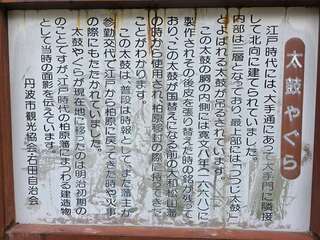 太鼓やぐら
江戸時代には、大手通にあって大手門に隣接
して北向に建てられていました。
内部は三層となっており、最上部には「つつじ太鼓」
とよばれる太鼓が吊るされています。
この太鼓の胴の内側には寛文八年(一六六八)に
製作されその後皮を張り替えた時の銘が残って
おり、この太鼓が国替えになる前の大和松山藩
の時から使用され、柏原移封の際に持ってきた
ことがわかります。
この太鼓は、普段は時報として、また藩主が
参勤交代で江戸から柏原に戻ってきた時や火事
の際にもたたかれていました。
太鼓やぐらが現在地に移ったのは明治初期の
ことですが、江戸時代の柏原藩にまつわる建造物
として当時の面影を伝えています。
丹波市観光協会 右田自治会